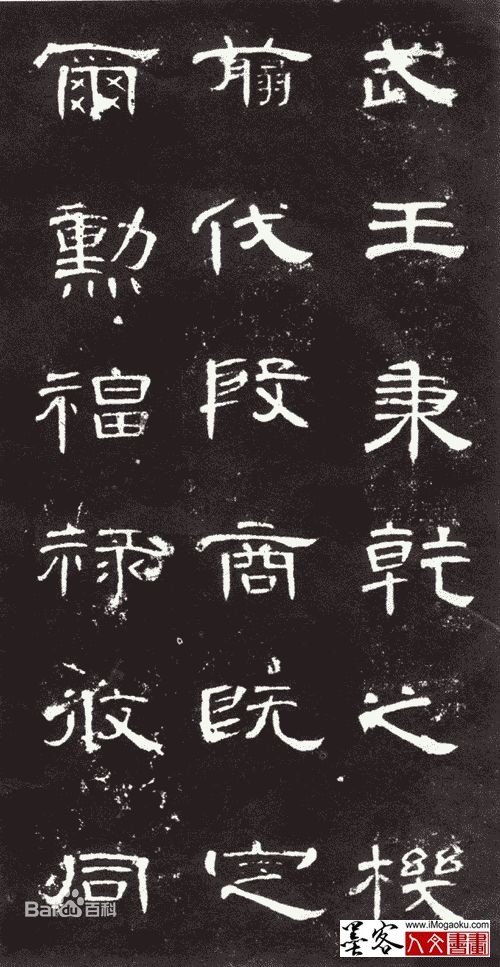 武王秉乾之機
翦伐殷商既定
爾勳福祿攸同
Baidu百科
墨客
www.iMogaoku.com
人文書畫